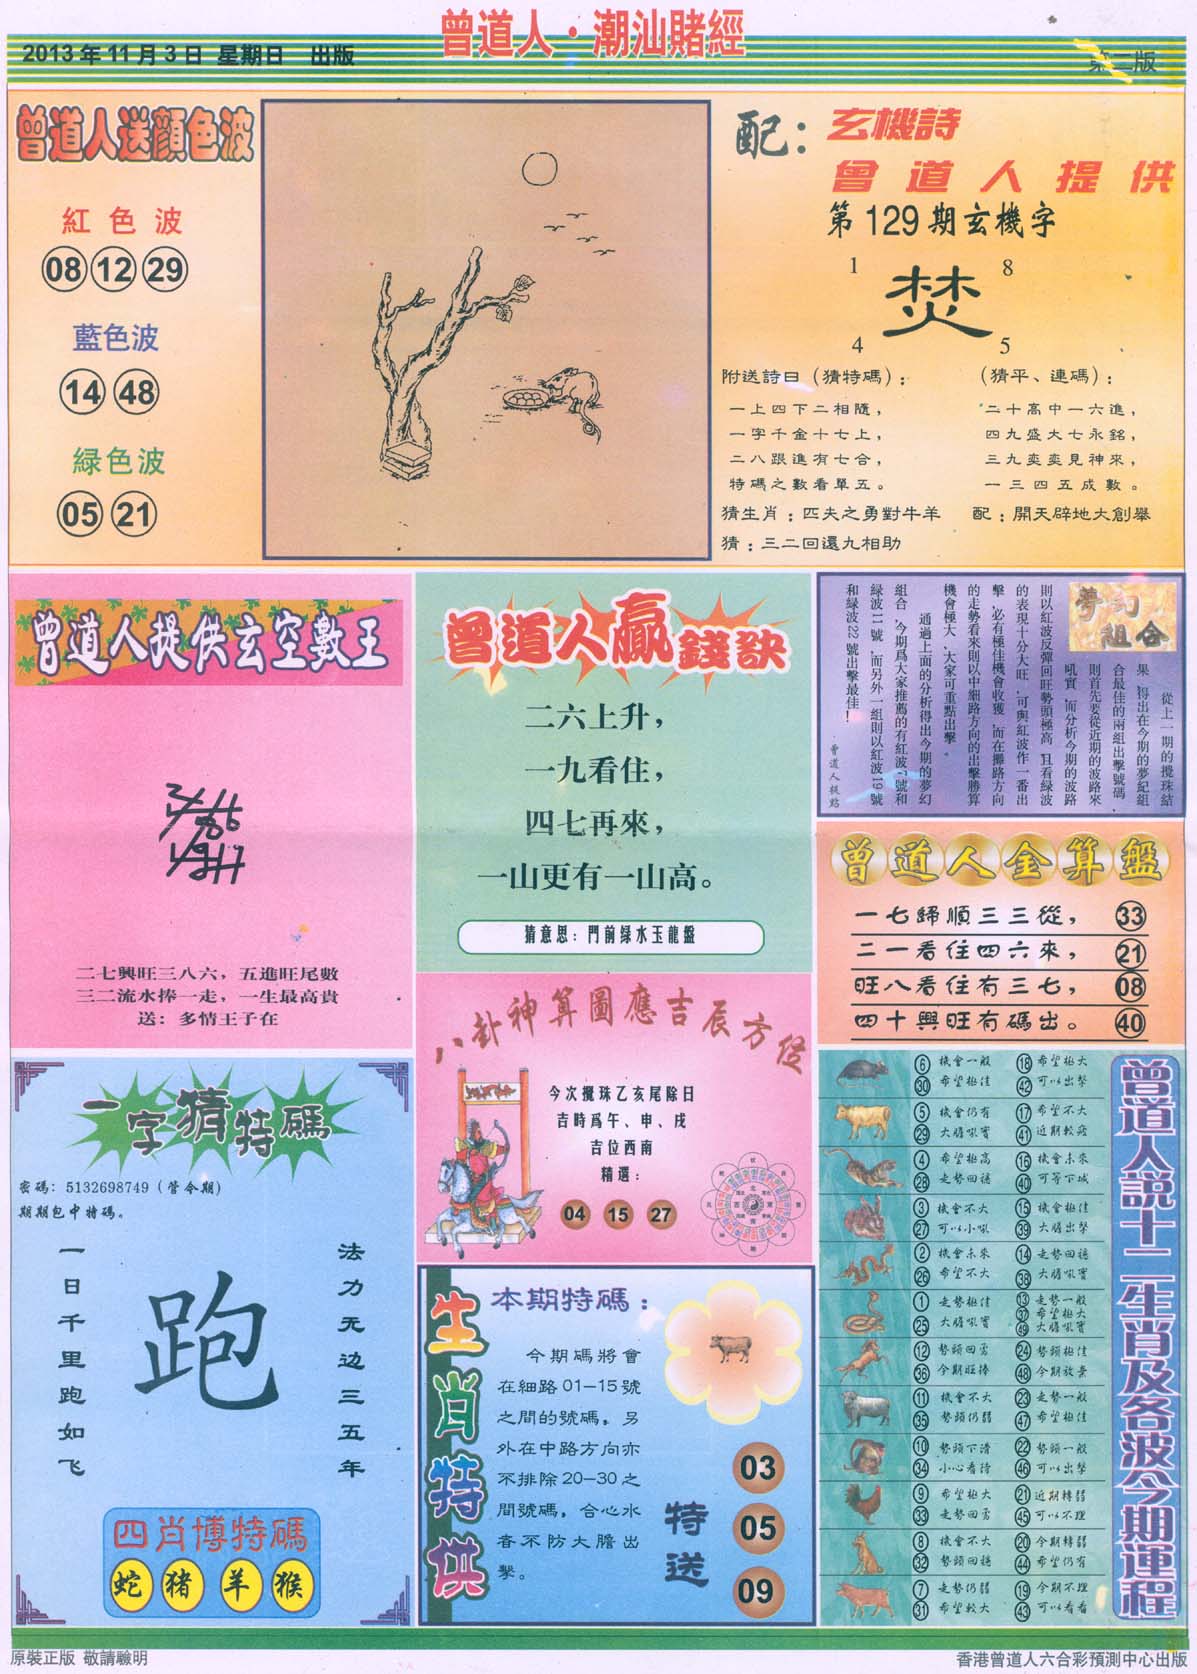 曾道人·潮汕賭經
2013年11月3日 星期日 出版
第二版
曾道人送顏色波
紅色波
08 12 29
藍色波
14 48
緑色波
05 21
配：
玄機詩
曾道人提供
第129期玄機字
1 8
焚
4 5
附送詩曰（猜特碼）：
一上四下二相隨，
一字千金十七上，
二八跟進有七合，
特碼之數看單五。
（猜平、連碼）：
二十高中一六進，
四九盛大七永銘，
三九奕奕見神來，
一三四五成數。
猜生肖：匹夫之勇對牛羊
配：開天辟地大創舉
猜：三二回還九相助
曾道人提供玄空數王
二七興旺三八六，五進旺尾數
三二流水捧一走，一生最高貴
送：多情王子在
曾道人贏錢訣
二六上升，
一九看住，
四七再來，
一山更有一山高。
猜意思：門前绿水玉龍盤
夢幻組合
從上一期的攪珠結
果，得出在今期的夢紀組
合最佳的兩組出擊號碼，
則首先要從近期的波路來
吼實，而分析今期的波路
則以紅波反彈回旺勢頭極高，且看緑波
的表現十分大旺，可與紅波作一番出
擊，必有極佳機會收獲，而在攤路方向
的走勢看來則以中細路方向的出擊勝算
機會極大，大家可重點出擊。
通過上面的分析得出今期的夢幻
組合，今期爲大家推薦的有紅波7號和
緑波11號，而另外一組則以紅波19號
和緑波22號出擊最佳！
曾道人提點
曾道人金算盤
一七歸順三三從， 33
二一看住四六來， 21
旺八看住有三七， 08
四十興旺有碼出。 40
八卦神算圖應吉辰方位
今次攪珠乙亥尾除日
吉時爲午、申、戌
吉位西南
精選：
04 15 27
一字猜特碼
密碼：5132698749（管令期）
期期包中特碼。
一日千里跑如飞
跑
法力无边三五年
四肖博特碼
蛇 猪 羊 猴
生肖特供
本期特碼：
今期碼將會
在細路01—15號
之間的號碼，另
外在中路方向亦
不排除20—30之
間號碼，合心水
者不防大膽出
擊。
特送
03
05
09
曾道人説十二生肖及各波今期運程
6 機會一般 18 希望極大
30 希望極佳 42 可以出擊
5 機會仍有 17 希望不大
29 大膽吼實 41 近期較疏
4 希望極高 16 機會未來
28 走勢回穩 40 可等下城
3 機會不大 15 機會極佳
27 可以小吼 39 大膽出擊
2 機會未來 14 走勢回穩
26 希望不大 38 大膽吼實
1 走勢極佳 13 走勢一般
37 希望極大
25 大膽吼實 49 大膽吼實
12 勢頭回勇 24 勢頭極佳
36 今期旺捧 48 今期放棄
11 機會不大 23 走勢一般
35 勢頭仍弱 47 希望極佳
10 勢頭下滑 22 勢頭一般
34 小心看待 46 可以出擊
9 希望極大 21 近期轉弱
33 走勢回勇 45 可以不理
8 機會不大 20 今期轉弱
32 勢頭回穩 44 希望仍有
7 走勢仍弱 19 今期不理
31 希望較大 43 可以看看
原裝正版 敬請驗明
香港曾道人六合彩預測中心出版